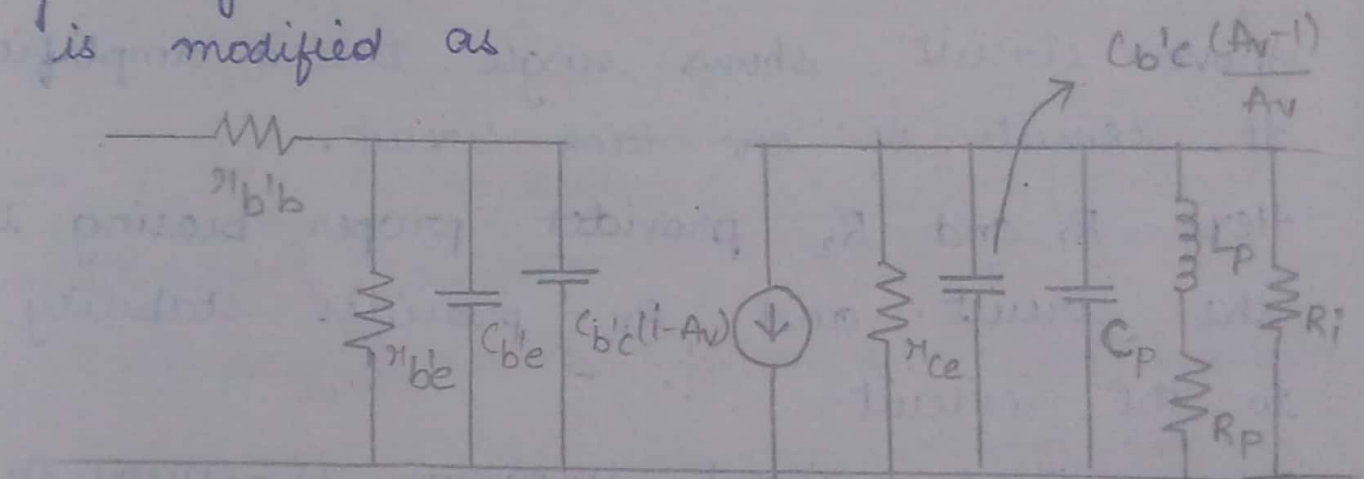 is modified as
Cb'c (Av-1)
Av
rb'b
rb'e
Cb'e
Cb'c(1-Av)
rce
Cp
Lp
Rp
Ri